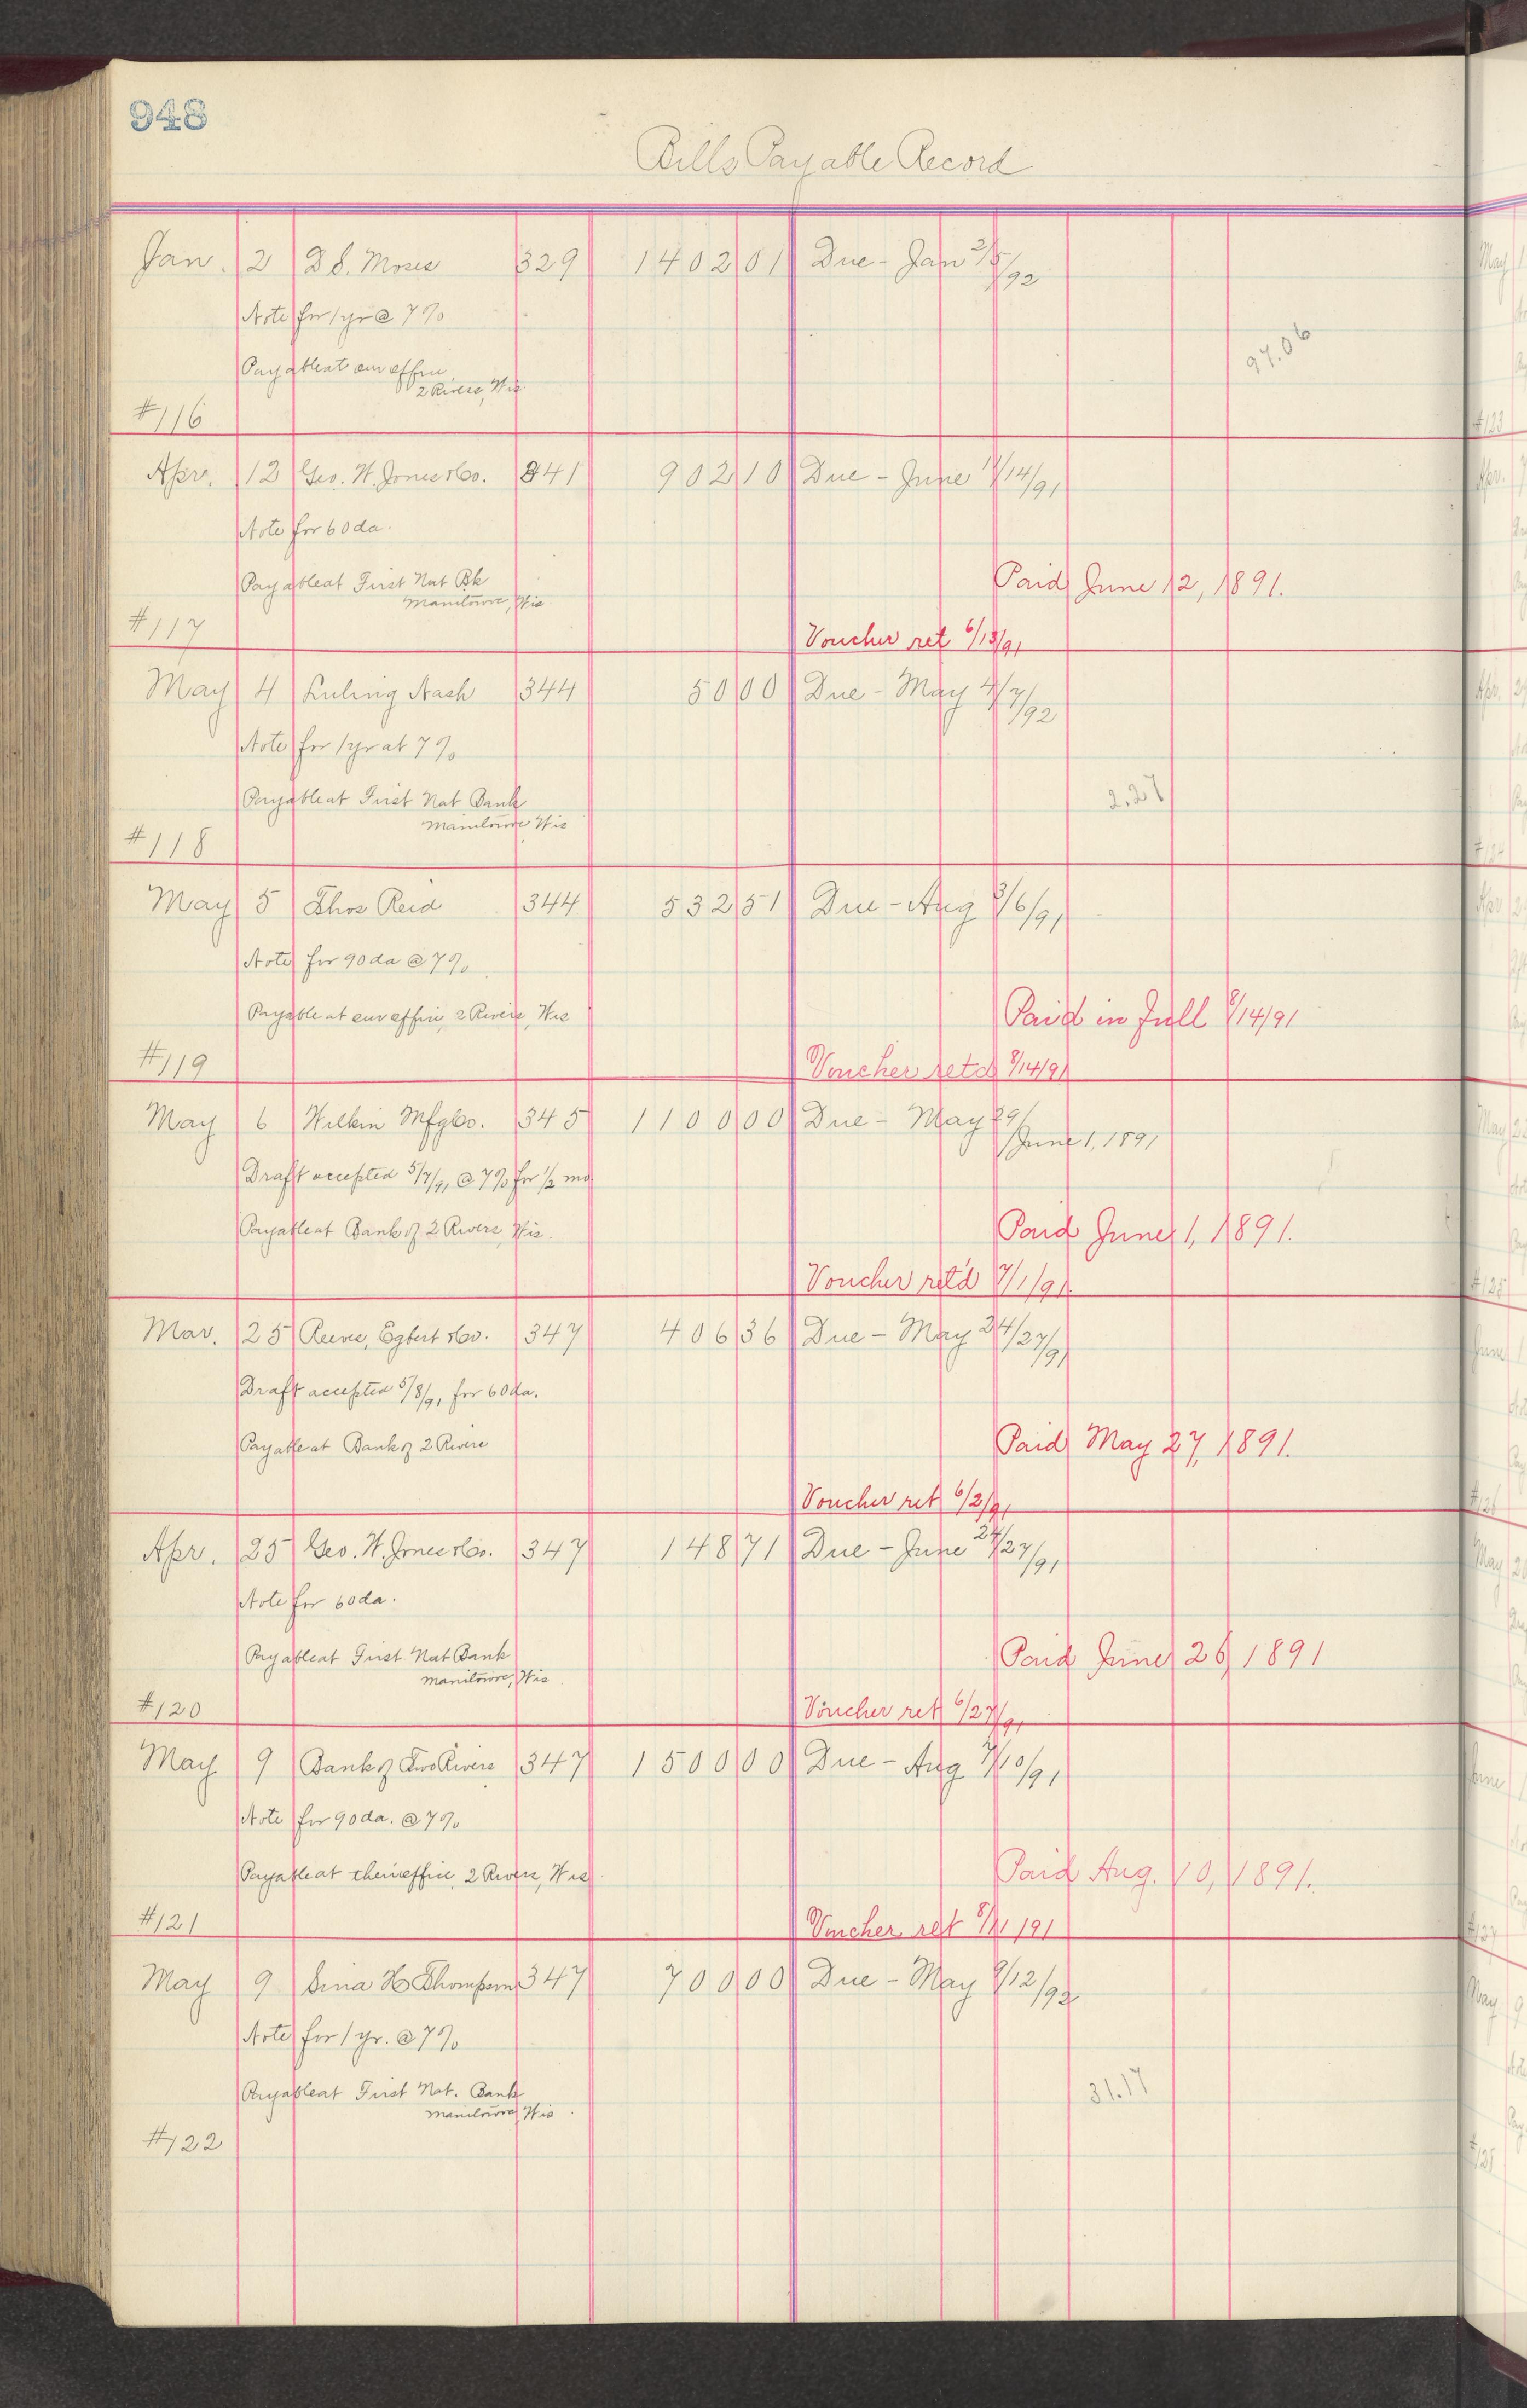 948
Bills Payable Record
Jan. 2 D S. Moses 329 1402 01 Due - Jan 2/5/92
Note for 1 yr @ 7%
Payable at our office
2 Rivers, Wis
97.06
#116
Apr. 12 Geo. W. Jones & Co. 341 902 10 Due - June 11/14/91
Note for 60 da.
Payable at First Nat Bk
Manitowoc, Wis
Paid June 12, 1891.
#117
Voucher ret 6/13/91
May 4 Luling Nash 344 50 00 Due - May 4/7/92
Note for 1 yr at 7%
Payable at First Nat Bank
Manitowoc Wis
2.27
#118
May 5 Thos Reid 344 532 51 Due - Aug 3/6/91
Note for 90 da @ 7%
Payable at our office, 2 Rivers, Wis
Paid in full 8/14/91
#119
Voucher retd 8/14/91
May 6 Wilkin Mfg Co. 345 1100 00 Due - May 29/June 1, 1891
Draft accepted 5/7/91 @ 7% for 1/2 mo
Payable at Bank of 2 Rivers, Wis.
Paid June 1, 1891.
Voucher ret'd 7/1/91.
Mar. 25 Reeves, Egbert & Co. 347 406 36 Due - May 24/27/91
Draft accepted 5/8/91 for 60 da.
Payable at Bank of 2 Rivers
Paid May 27, 1891.
Voucher ret 6/2/91
Apr. 25 Geo. W. Jones & Co. 347 148 71 Due - June 24/27/91
Note for 60 da.
Payable at First Nat Bank
Manitowoc, Wis
Paid June 26, 1891
#120
Voucher ret 6/27/91
May 9 Bank of Two Rivers 347 1500 00 Due - Aug 7/10/91
Note for 90 da. @ 7%
Payable at their office, 2 Rivers, Wis
Paid Aug. 10, 1891.
#121
Voucher ret 8/11/91
May 9 Sina H Thompson 347 700 00 Due - May 9/12/92
Note for 1 yr. @ 7%
Payable at First Nat. Bank
Manitowoc, Wis.
31.17
#122